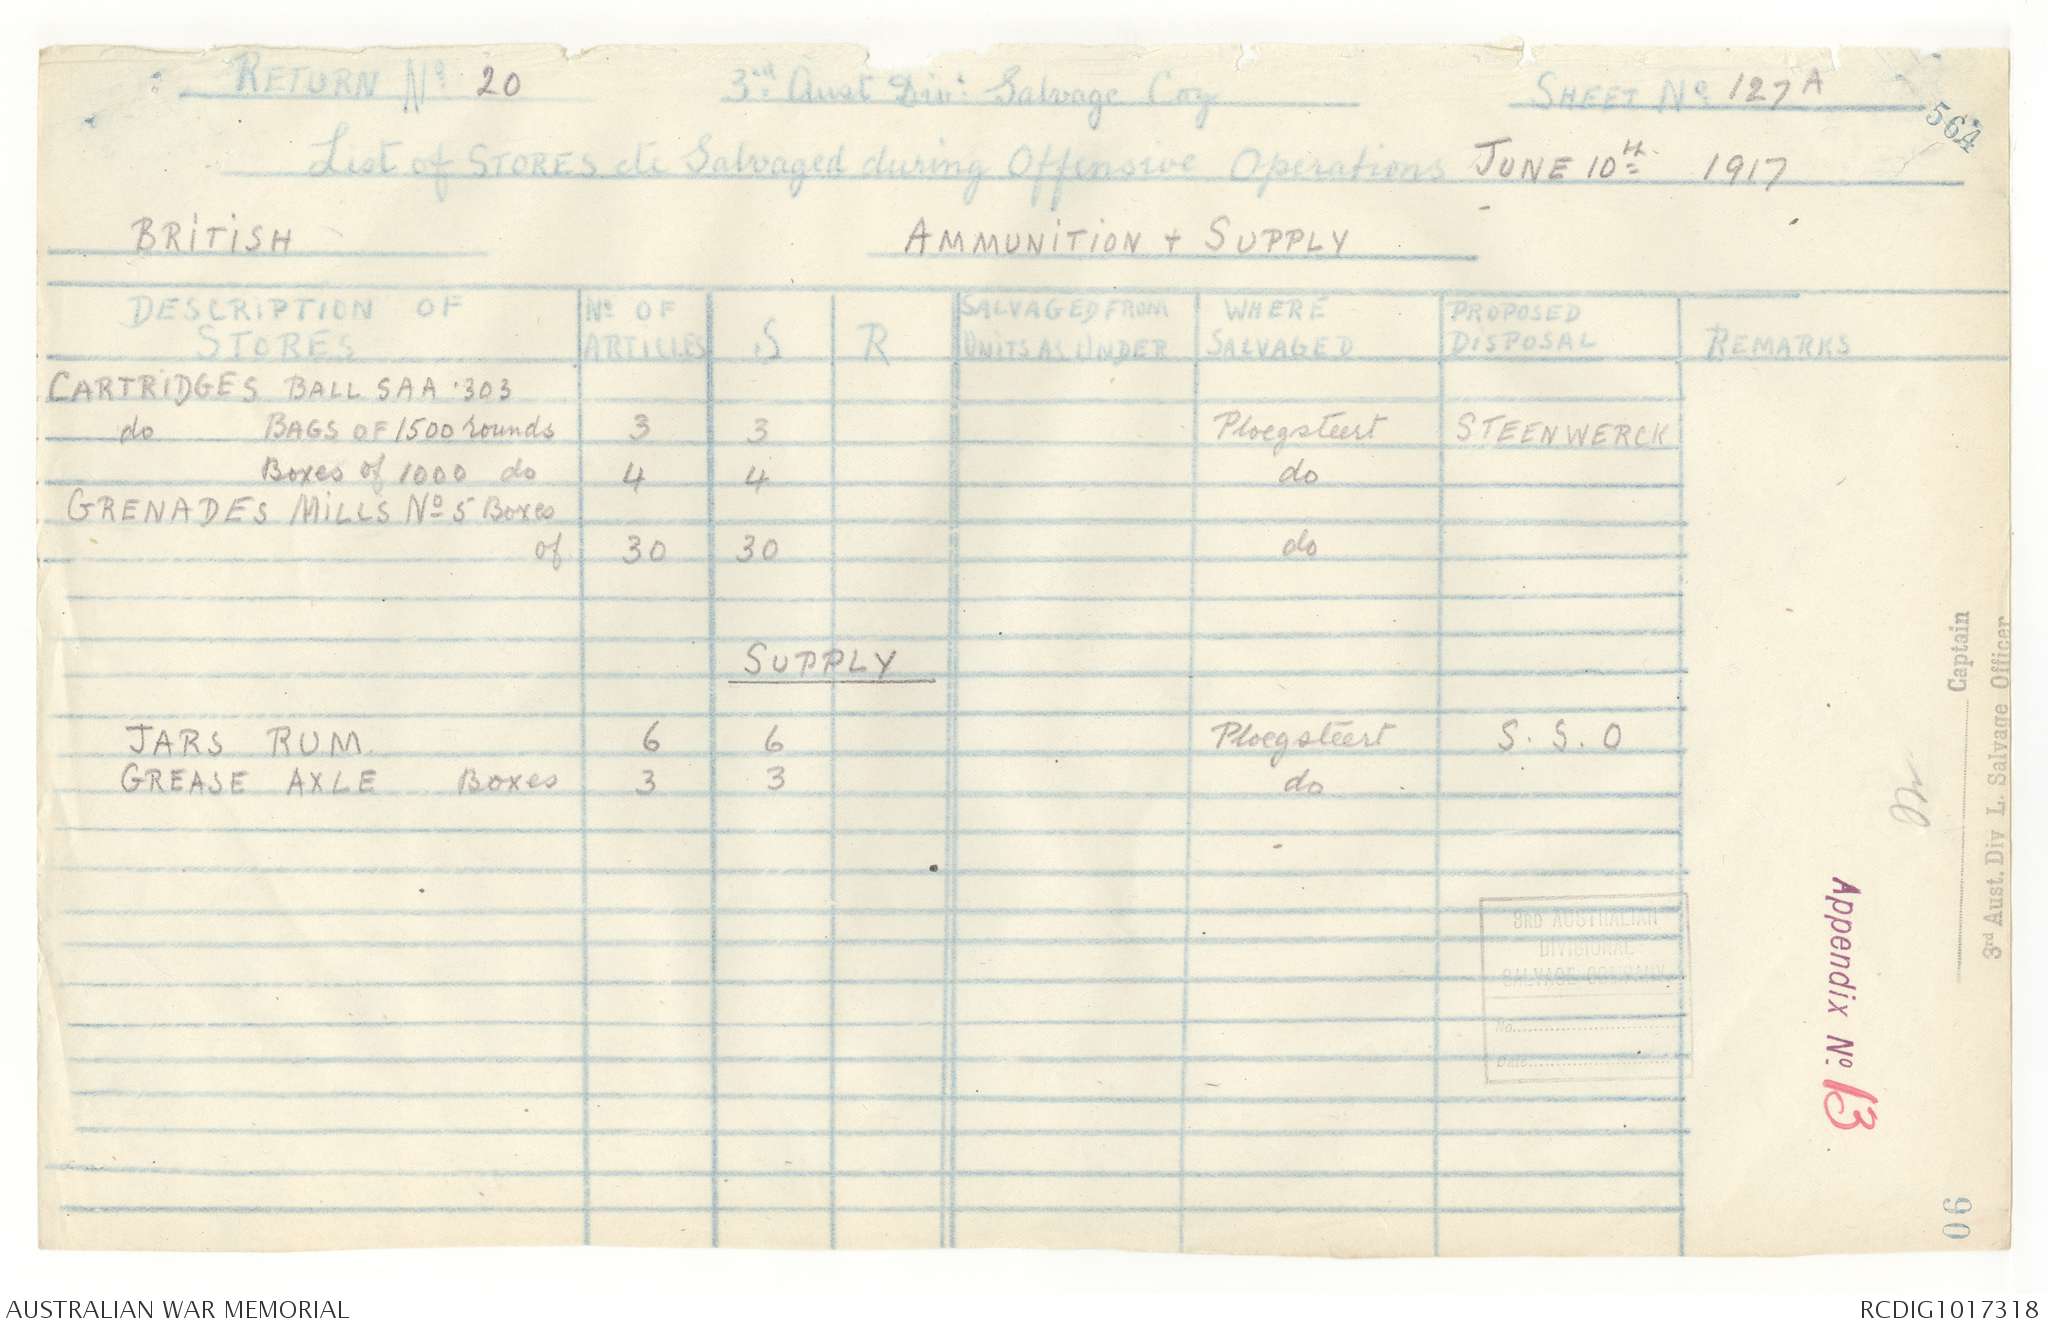 RETURN No 20 3rd Aust Div: Salvage Coy SHEET No 127A
564
List of STORES etc Salvaged during Offensive Operations JUNE 10TH 1917
BRITISH AMMUNITION + SUPPLY
DESCRIPTION OF STORES No OF ARTICLES S R SALVAGED FROM UNITS AS UNDER WHERE SALVAGED PROPOSED DISPOSAL REMARKS
CARTRIDGES BALL SAA .303
do BAGS OF 1500 rounds 3 3 Ploegsteert STEENWERCK
Boxes of 1000 do 4 4 do
GRENADES MILLS No 5 Boxes
of 30 30 do
SUPPLY
JARS RUM 6 6 Ploegsteert S. S. O
GREASE AXLE Boxes 3 3 do
3RD AUSTRALIAN
DIVISIONAL
SALVAGE COMPANY
No.
Date
Appendix No. 13
Captain
3rd Aust. Div L. Salvage Officer
06
AUSTRALIAN WAR MEMORIAL RCDIG1017318